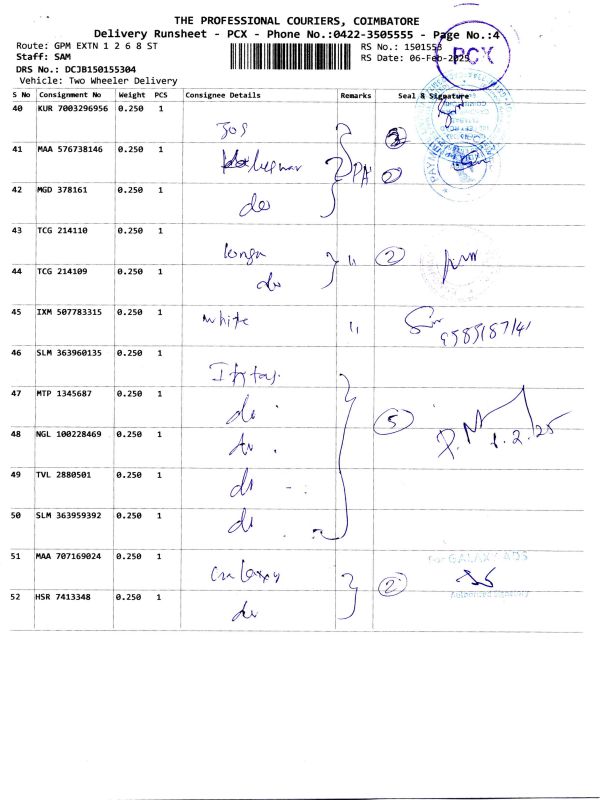 THE PROFESSIONAL COURIERS, COIMBATORE
Delivery Runsheet - PCX - Phone No.:0422-3505555 - Page No.:4
Route: GPM EXTN 1 2 6 8 ST
RS No.: 1501553
Staff: SAM
RS Date: 06-Feb-2025
PCX
DRS No.: DCJB150155304
Vehicle: Two Wheeler Delivery
S No Consignment No Weight PCS Consignee Details Remarks Seal & Signature
40 KUR 7003296956 0.250 1
41 MAA 576738146 0.250 1
42 MGD 378161 0.250 1 do
43 TCG 214110 0.250 1 " 2
44 TCG 214109 0.250 1 do
45 IXM 507783315 0.250 1 white "
46 SLM 363960135 0.250 1
47 MTP 1345687 0.250 1 do 5
48 NGL 100228469 0.250 1 do
49 TVL 2880501 0.250 1 do
50 SLM 363959392 0.250 1 do
51 MAA 707169024 0.250 1 Galaxy 2 For GALAXY ADS
52 HSR 7413348 0.250 1 do Authorised Signatory